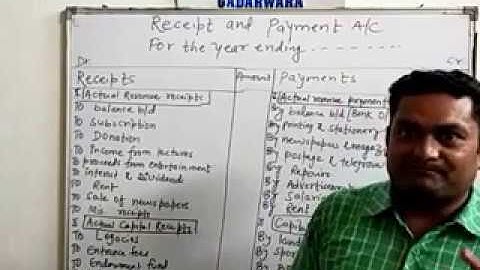 GADARWARA
Receipt and Payment A/C
For the year ending
Dr.
Cr.
Receipts
Amount
Payments
Actual Revenue receipts
To balance b/d
To Subscription
To Donation
To Income from lectures
To proceeds from entertainment
To interest & Dividends
To Rent
To Sale of newspapers
To Mis receipts
Actual Capital Receipts
To Legacies
To Entrance fees
To Endowment fund
Actual revenue payment
By balance b/d/Bank O/
By printing & stationery
By newspapers &
By postage &
By Repair
By Advertisement
By Salaries
By Rent
Capi
By land
By
By